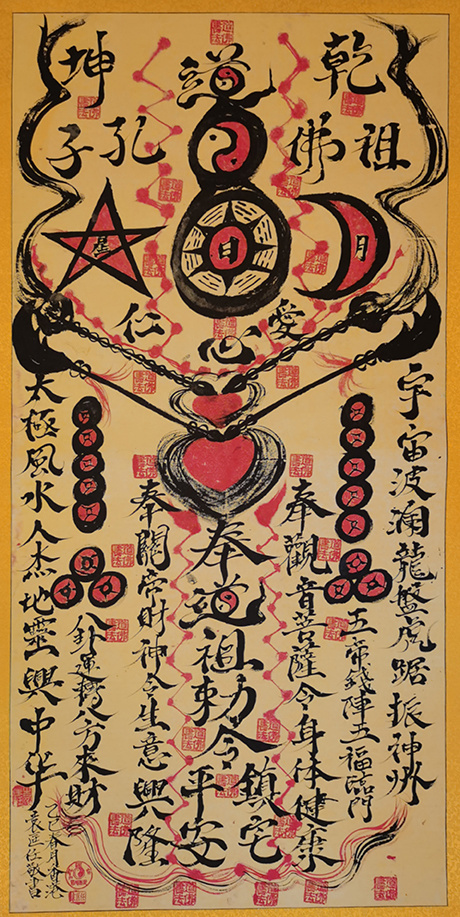 乾
道
坤
祖佛
孔子
月
日
星
愛心仁
宇宙波瀾龍盤虎踞振神州
五常錢陣五福臨門
奉觀音菩薩令身体健康
奉道祖勅令
鎮宅平安
奉關帝財神令生意興隆
八卦運轉八方來財
太極風水人杰地靈興中华
乙巳春月香港
敬書